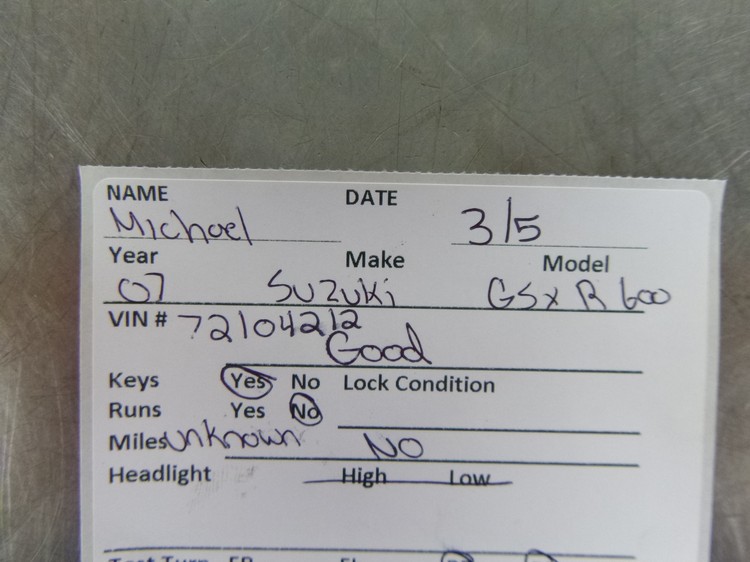 NAME DATE
Michael 3/5
Year Make Model
07 Suzuki GSX R 600
VIN # 72104212
Good
Keys Yes No Lock Condition
Runs Yes No
Miles unknown NO
Headlight High Low